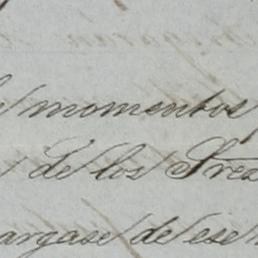 momentos
De los Sres
argase de ese